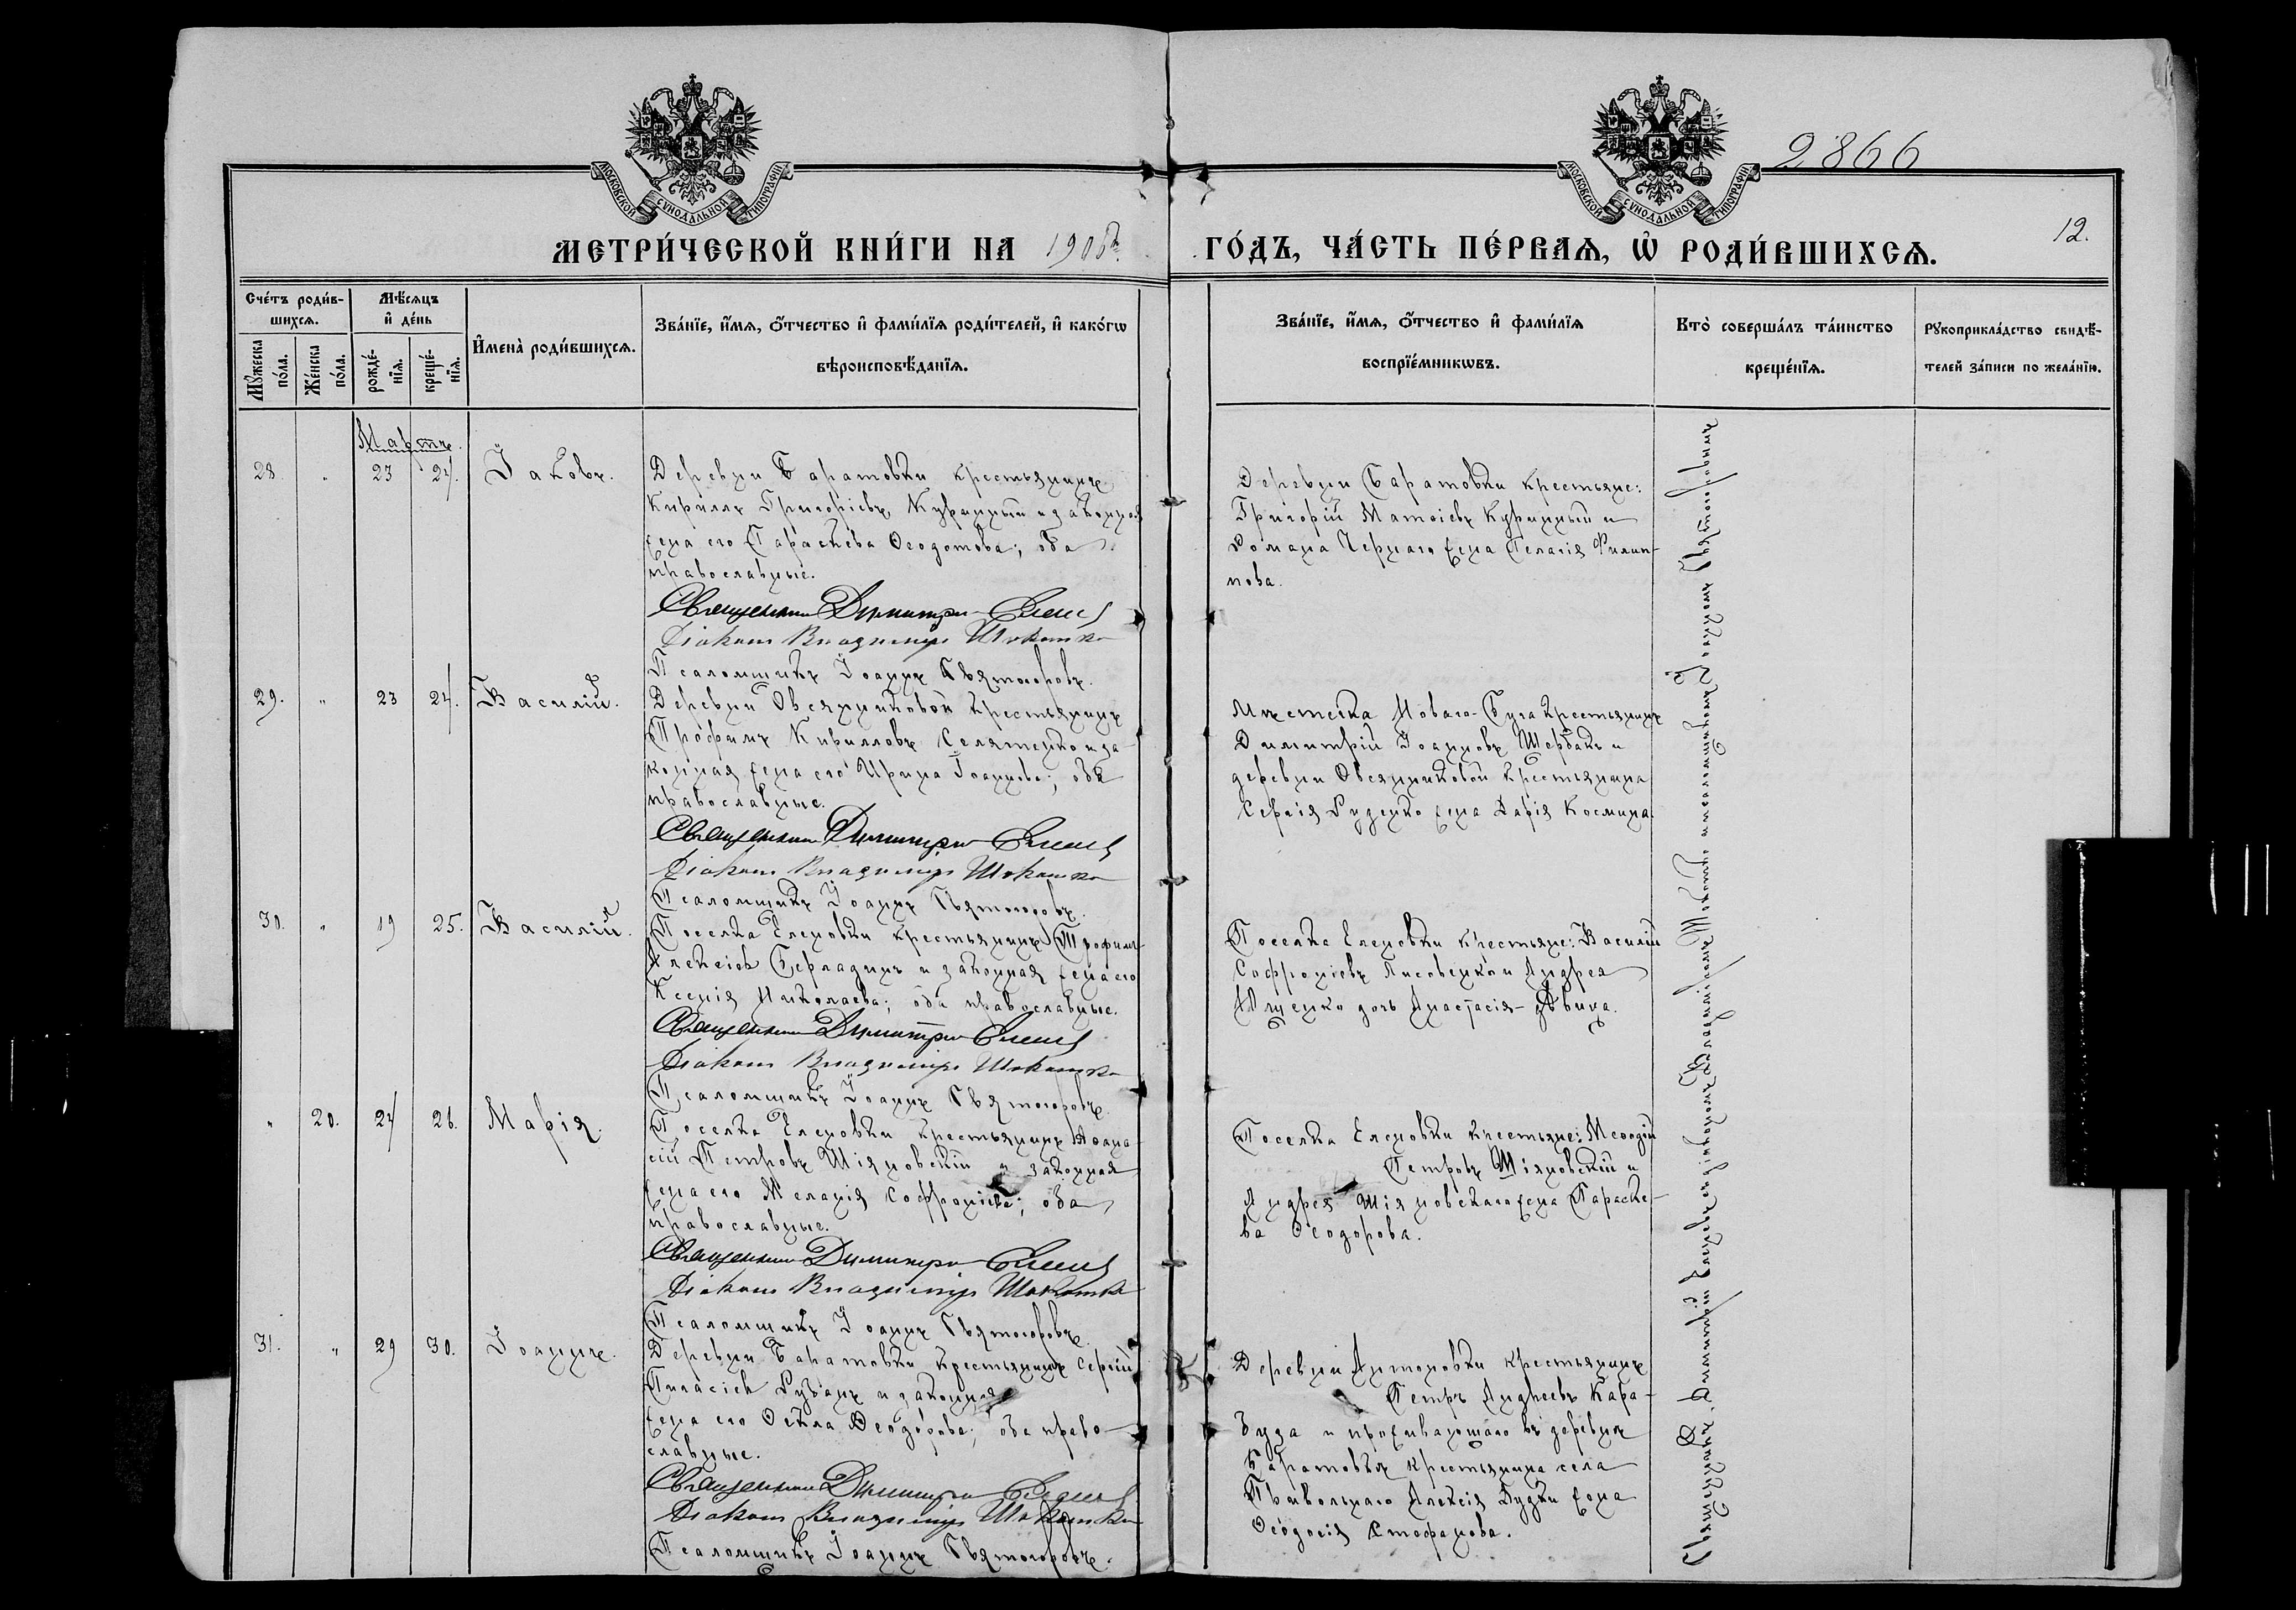 МОСКОВСКОЙ СѴНОДАЛЬНОЙ ТИПОГРАФІИ
МОСКОВСКОЙ СѴНОДАЛЬНОЙ ТИПОГРАФІИ
2866
12.
МЕТРИ́ЧЕСКОЙ КНИ́ГИ НА
ГО́ДЪ, ЧА́СТЬ ПЕ́РВАѦ, Ѡ҆ РОДИ́ВШИХСѦ.
Сче́тъ роди́в-
шихсѧ.
Мꙋ́жеска по́ла.
Же́нска по́ла.
Мѣ́сѧцъ
и҆ де́нь
рожде́-
нїѧ.
креще́-
нїѧ.
И҆мена̀ роди́вшихсѧ.
Зва́нїе, и҆́мѧ, ѻ҆́тчество и҆ фами́лїѧ роди́телей, и҆ како́гѡ
вѣроисповѣ́данїѧ.
Зва́нїе, и҆́мѧ, ѻ҆́тчество и҆ фами́лїѧ
воспрїе́мникѡвъ.
Кто̀ соверша́лъ та́инство
креще́нїѧ.
Рꙋкоприкла́дство свидѣ́-
телей за́писи по жела́нїю.
Мартъ.
28. " 23 24. Іаковъ.
Деревни Баратовки крестьянинъ
Кириллъ Григоріевъ Куринный и законная
жена его Параскева Ѳеодотова; оба
православные.
Священникъ Димитрій
Діаконъ Владиміръ Шокотко
Псаломщикъ Іоаннъ Святогоровъ.
Деревни Баратовки крестьяне:
Григорій Матѳіевъ Куринный и
Романа Чернаго жена Пелагія Филип-
пова.
29. " 23 24. Василій.
Деревни Овсянниковой крестьянинъ
Трофимъ Кирилловъ Селятенко и за-
конная жена его Ирина Іоаннова; оба
православные.
Священникъ Димитрій
Діаконъ Владиміръ Шокотко
Псаломщикъ Іоаннъ Святогоровъ.
Мѣстечка Новаго-Буга крестьянинъ
Димитрій Іоанновъ Щербакъ и
деревни Овсянниковой крестьянина
Сергія Руденко жена Дарія Космина.
30. " 19 25. Василій.
Поселка Еленовки крестьянинъ Трофимъ
Алексіевъ Берладинъ и законная жена его
Ксенія Николаева; оба православные.
Священникъ Димитрій
Діаконъ Владиміръ Шокотко
Псаломщикъ Іоаннъ Святогоровъ.
Поселка Еленовки крестьяне: Василій
Софроніевъ Лисовенко и Андрея
Ющенко дочь Анастасія - дѣвица.
" 20. 24 26. Марія.
Поселка Еленовки крестьянинъ Аѳана-
сій Петровъ Шіяновскій и законная
жена его Меланія Софроніева; оба
православные.
Священникъ Димитрій
Діаконъ Владиміръ Шокотко
Псаломщикъ Іоаннъ Святогоровъ.
Поселка Еленовки крестьяне: Меѳодій
Петровъ Шіяновскій и
Андрея Шіяновскаго жена Параске-
ва Ѳеодорова.
31. " 29 30. Іоаннъ.
Деревни Баратовки крестьянинъ Сергій
Рубанъ и законная
жена его Ѳекла Ѳеодорова; оба право-
славные.
Священникъ Димитрій
Діаконъ Владиміръ Шокотко
Псаломщикъ Іоаннъ Святогоровъ.
Деревни Антоновки крестьянинъ
Петръ Андреевъ Кара-
буда и проживающаго въ деревнѣ
Баратовкѣ крестьянина села
Алексія Дудки жена
Ѳеодосія Стефанова.
Священникъ Димитрій съ діакономъ Владиміромъ Шокотко и псаломщикомъ Іоанномъ Святогоровымъ